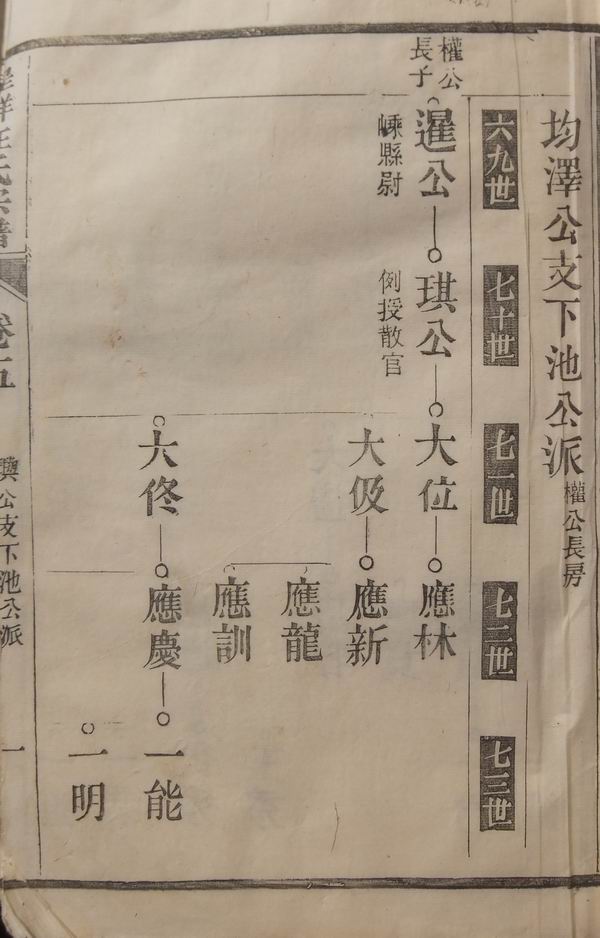 均澤公支下池公派 權公長房
六九世
七十世
七一世
七二世
七三世
權公
長子
暹公
嵊縣尉
琪公
例授散官
大位
應林
大伋
應新
應龍
應訓
大佟
應慶
一能
一明
汪氏宗譜
卷之五
公支下池公派
一